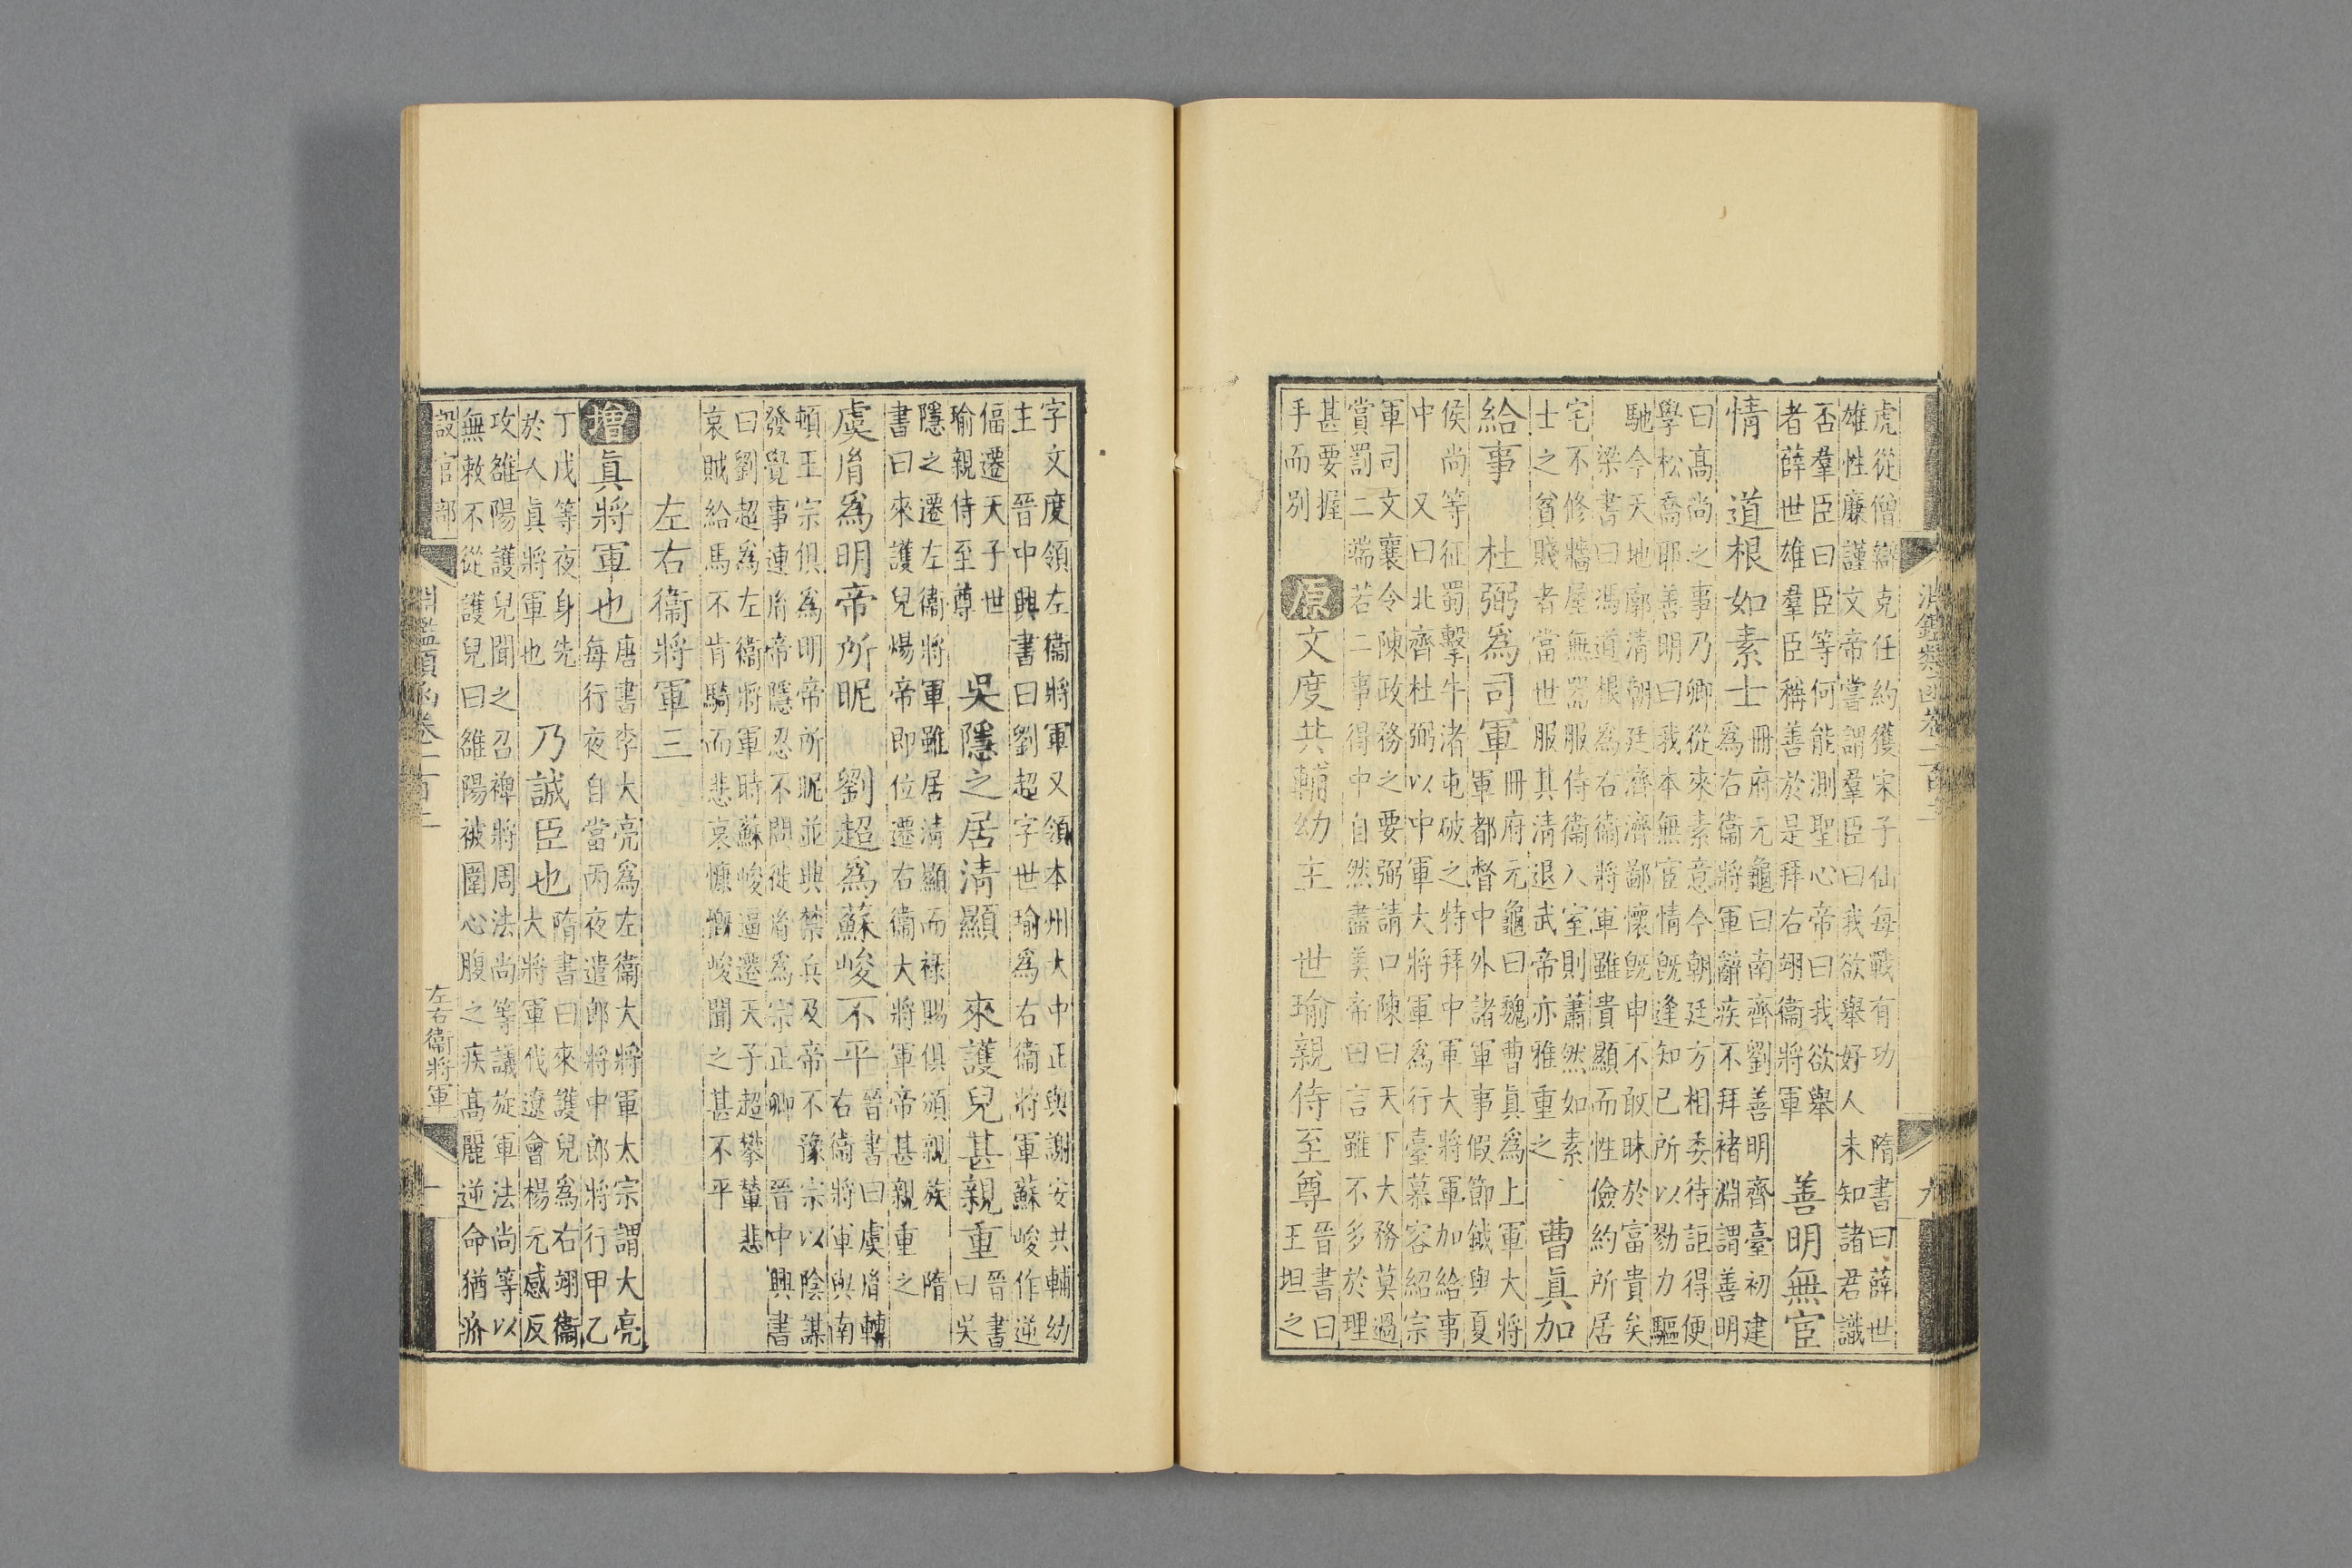 虎從僧辯克任約獲宋子仙每戰有功　隋書曰薛世
雄性廉謹文帝嘗謂羣臣曰我欲舉好人未知諸君識
否羣臣曰臣等何能測聖心帝曰我欲舉
者薛世雄羣臣稱善於是拜右翊衞將軍
善明無宦
情　道根如素士
冊府元龜曰南齊劉善明齊臺初建
爲右衞將軍辭疾不拜褚淵謂善明
曰高尚之事乃卿從來素意今朝廷方相委待詎得便
學松喬耶善明曰我本無宦情旣逢知己所以勠力驅
馳今天地廓清朝廷濟濟鄙懷旣申不敢昧於富貴矣
梁書曰馮道根爲右衞將軍雖貴顯而性儉約所居
宅不修牆屋無器服侍衞入室則蕭然如素
士之貧賤者當世服其清退武帝亦雅重之
曹眞加
給事　杜弼爲司軍
冊府元龜曰魏曹眞爲上軍大將
軍都督中外諸軍事假節鉞與夏
侯尚等征蜀擊牛渚屯破之特拜中軍大將軍加給事
中　又曰北齊杜弼以中軍大將軍爲行臺慕容紹宗
軍司文襄令陳政務之要弼請口陳曰天下大務莫過
賞罰二端若二事得中自然盡美帝曰言雖不多於理
甚要握
手而別
原文度共輔幼主　世瑜親侍至尊
晉書曰
王坦之
字文度領左衞將軍又領本州大中正與謝安共輔幼
主　晉中興書曰劉超字世瑜爲右衞將軍蘇峻作逆
偪遷天子世
瑜親侍至尊
吳隱之居清顯　來護兒甚親重
晉書
曰吳
隱之遷左衞將軍雖居清顯而祿賜俱頒親族　隋
書曰來護兒煬帝即位遷右衞大將軍帝甚親重之
虞胤爲明帝所昵　劉超爲蘇峻不平
晉書曰虞胤轉
右衞將軍與南
頓王宗俱爲明帝所昵並典禁兵及帝不豫宗以陰謀
發覺事連胤帝隱忍不問徙胤爲宗正卿　晉中興書
曰劉超爲左衞將軍時蘇峻逼遷天子超攀輦悲
哀賊給馬不肯騎而悲哀慷慨峻聞之甚不平
左右衞將軍三
增眞將軍也
唐書李大亮爲左衞大將軍太宗謂大亮
每行夜自當丙夜遣郎將中郎將行甲乙
丁戊等夜身先
於人眞將軍也
乃誠臣也
隋書曰來護兒爲右翊衞
大將軍伐遼會楊元感反
攻雒陽護兒聞之召裨將周法尚等議旋軍法尚等以
無敕不從護兒曰雒陽被圍心腹之疾高麗逆命猶疥
設官部
淵鑑類函卷一百二
左右衞將軍